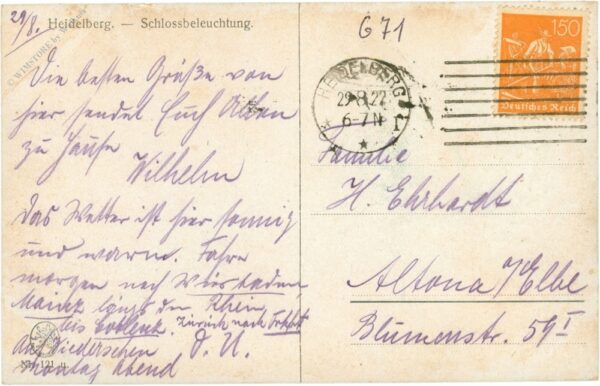 29/8.
Heidelberg. — Schlossbeleuchtung.
© WIMSTORE by
G 71
150
Deutsches Reich
HEIDELBERG
29.8.22
6-7 N
1
Die besten Grüße von
hier sendet Euch Allen
zu Hause
Wilhelm
Das Wetter ist hier sonnig
und warm. Fahre
morgen nach Wiesbaden,
Mainz längs den Rhein
bis Coblenz. Zurück nach
Auf Wiedersehen D. U.
Montag Abend
Familie
H. Ehrhardt
Altona / Elbe
Blumenstr. 59 I